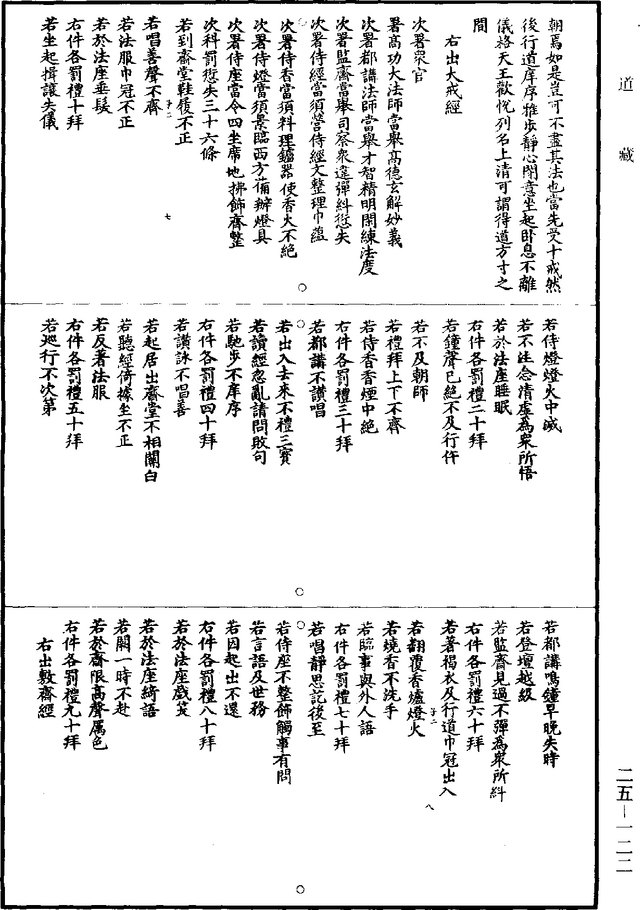 道藏
朝焉如是豈可不盡其法也當先受十戒然
後行道庠序雅步靜心閉意坐起卧息不離
儀格天王歡悅列名上清可謂得道方寸之
間
右出大戒經
次署眾官
署高功大法師當舉高德玄解妙義
次署都講法師當舉才智精明閑練法度
次署監齋當舉司察眾違彈糾愆失
次署侍經當須營侍經文整理巾蘊
次署侍香當須料理鑪器使香火不絕
次署侍燈當須景臨西方備辦燈具
次署侍座當令四坐席地拂飾齊整
次科罰愆失三十六條
若到齋堂鞋履不正
若唱善聲不齊
若法服巾冠不正
若於法座垂髮
右件各罰禮十拜
若坐起揖讓失儀
若侍燈燈火中滅
若不注念清虛為眾所悟
若於法座睡眠
右件各罰禮二十拜
若鐘聲已絕不及行仵
若不及朝師
若禮拜上下不齊
若侍香香煙中絕
右件各罰禮三十拜
若都講不讚唱
若出入去來不禮三寶
若讀經忽亂請問敗句
若馳步不庠序
右件各罰禮四十拜
若讚詠不唱善
若起居出齋堂不相關白
若聽經倚據坐不正
若反著法服
右件各罰禮五十拜
若巡行不次第
若都講鳴鐘早晚失時
若登壇越級
若監齋見過不彈為眾所糾
右件各罰禮六十拜
若著褐衣及行道巾冠出入
若翻覆香爐燈火
若燒香不洗手
若臨事與外人語
右件各罰禮七十拜
若唱靜思訖後至
若侍座不整飾觸事有問
若言語及世務
若因起出不還
右件各罰禮八十拜
若於法座戲笑
若於法座綺語
若闕一時不赴
若於齋限高聲厲色
右件各罰禮九十拜
右出敷齋經
二五—一二二